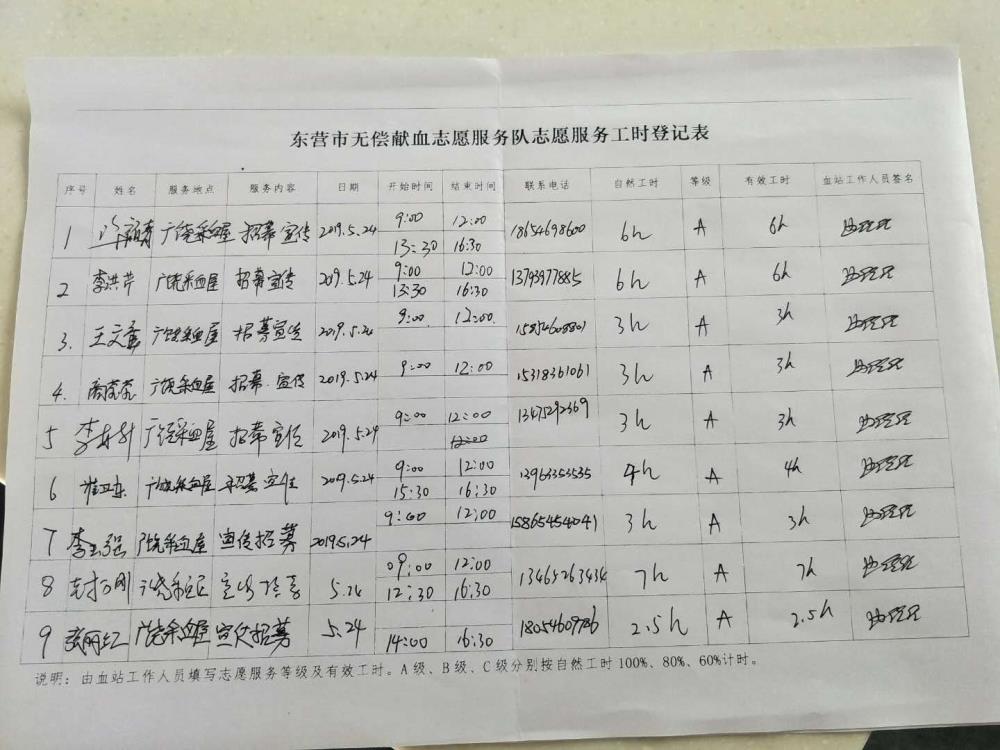 东营市无偿献血志愿服务队志愿服务工时登记表
序号 姓名 服务地点 服务内容 日期 开始时间 结束时间 联系电话 自然工时 等级 有效工时 血站工作人员签名
1 广饶采血屋 招募宣传 2019.5.24 9:00 12:00 18654698600 6h A 6h
13:30 16:30
2 李洪芹 广饶采血屋 招募宣传 2019.5.24 9:00 12:00 13793977885 6h A 6h
13:30 16:30
3. 王文 广饶采血屋 招募宣传 2019.5.24 9:00 12:00 3h A 3h
4. 广饶采血屋 招募.宣传 2019.5.24 9:00 12:00 15318361061 3h A 3h
5 李 广饶采血屋 招募宣传 2019.5.24 9:00 12:00 13475292369 3h A 3h
6 广饶采血屋 招募宣传 2019.5.24 9:00 12:00 13963353535 4h A 4h
15:30 16:30
7 李玉强 广饶采血屋 宣传招募 2019.5.24 9:00 12:00 15865454041 3h A 3h
8 5.24 09:00 12:00 13465263434 7h A 7h
12:30 16:30
9 张丽红 广饶采血屋 宣传招募 5.24 14:00 16:30 18054609786 2.5h A 2.5h
说明：由血站工作人员填写志愿服务等级及有效工时。A级、B级、C级分别按自然工时100%、80%、60%计时。